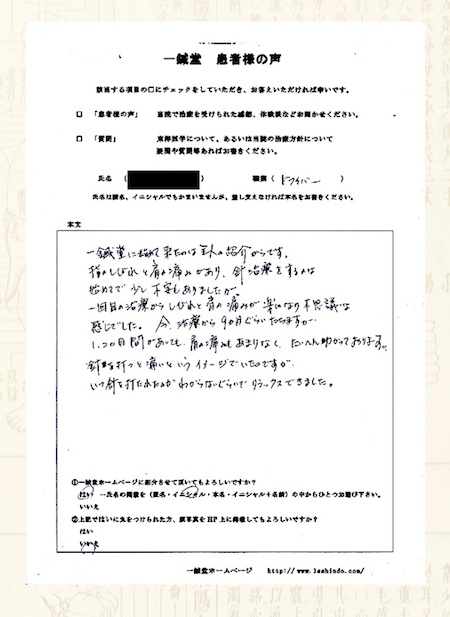 一鍼堂 患者様の声
該当する項目の□にチェックをしていただき、お答えいただければ幸いです。
□ 「患者様の声」 当院で治療を受けられた感想、体験談などお聞かせください。
□ 「質問」 東洋医学について、あるいは当院の治療方針について
疑問や質問等あればお書きください。
氏名 ( ) 職業 ( ドライバー )
氏名は匿名、イニシャルでもかまいませんが、差し支えなければ本名をお書きください。
本文
一鍼堂に初めて来たのは 主人の紹介からです。
指のしびれと肩の痛みがあり、針治療をするのは
始めてで少し不安もありましたが、
一回目の治療から しびれと肩の痛みが楽になり 不思議な
感じでした。 今、治療から 9か月ぐらいたちますが
1、2か月間があいても、肩の痛みもあまりなく、たいへん助かっております。
針を打つと痛いというイメージでいたのですが、
いつ針を打たれたのか わからないぐらいで リラックスできました。
①一鍼堂ホームページに紹介させて頂いてもよろしいですか?
はい →氏名の掲載を (匿名・イニシャル・本名・イニシャル+名前) の中からひとつお選び下さい。
いいえ
②上記ではいに丸をつけられた方、顔写真をHP上に掲載してもよろしいですか?
はい
いいえ
一鍼堂ホームページ http://www.1sshindo.com/